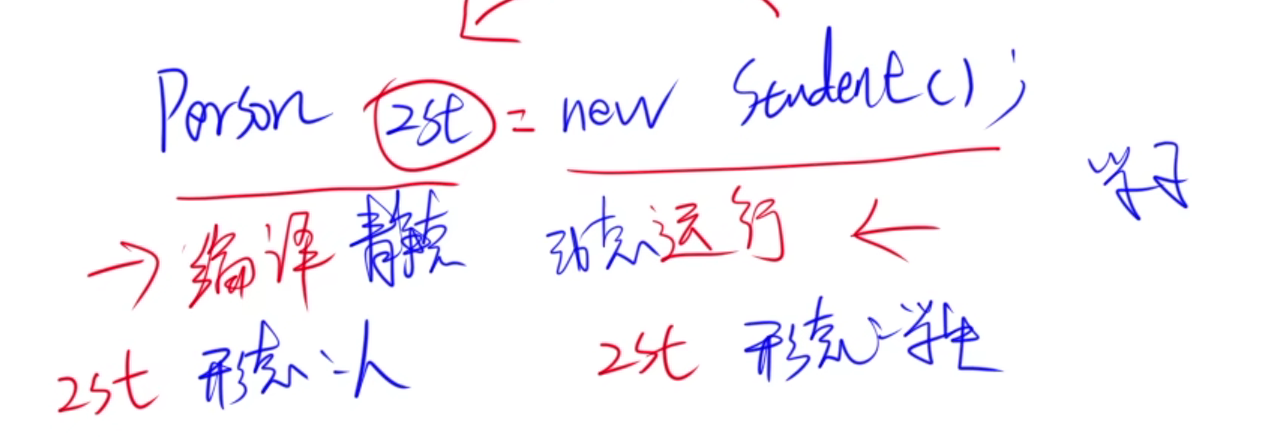 Person zst = new Student();
学习
编译 静态 动态 运行
zst 形态:人 zst 形态:学生